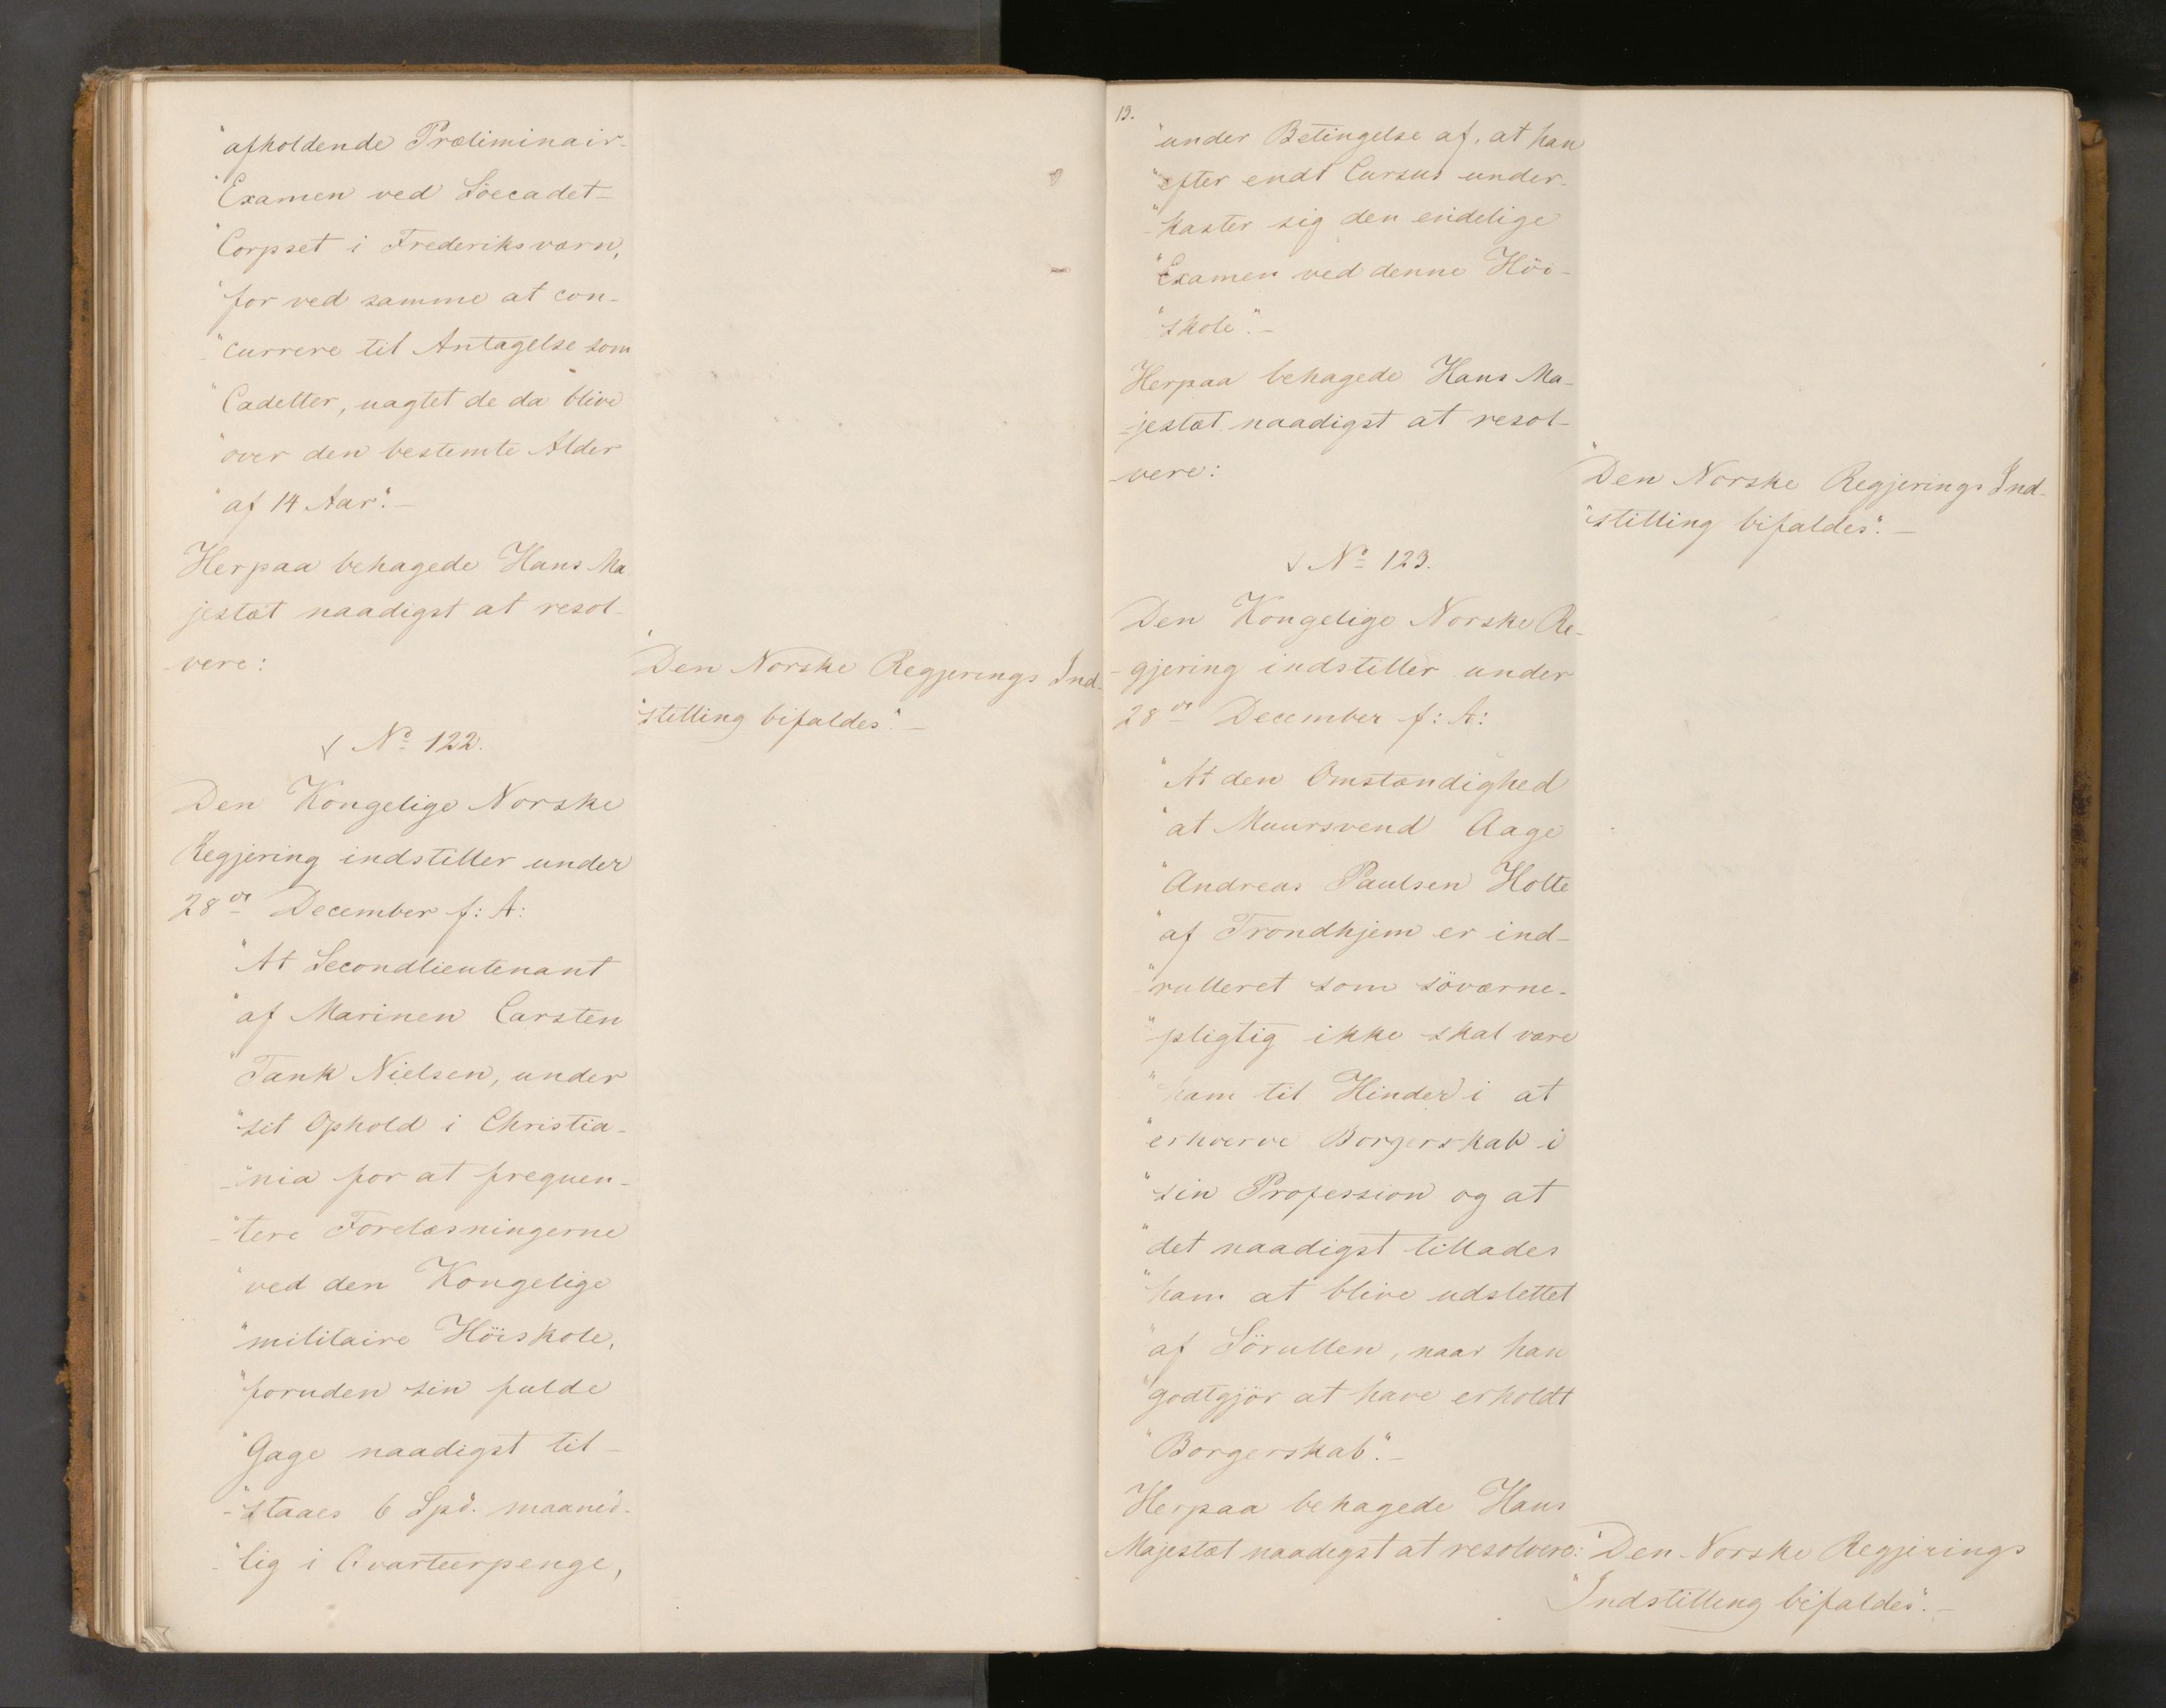 "afholdende Præliminair-
"Examen ved Söecadet-
"Corpset i Frederiksværn,
"for ved samme at con-
-"currere til Antagelse som
"Cadetter, uagtet de da blive
"over den bestemte Alder
"af 14 Aar".-
Herpaa behagede Hans Ma
jestæt naadigst at resol-
-vere:
"Den Norske Regjerings Ind-
"stilling bifaldes".-
No 122.
Den Kongelige Norske
Regjering indstiller under
28de December f: A:
"At Secondlieutenant
"af Marinen Carsten
"Tank Nielsen, under
"sit Ophold i Christia-
-"nia for at frequen-
-"tere Forelæsningerne
"ved den Kongelige
"militaire Höiskole,
"foruden sin fulde
"Gage naadigst til-
-"staaes 6 Spd. maaned-
-"lig i Qvarteerpenge,
13.
"under Betingelse af, at han
"efter endt Cursus under-
-"kaster sig den endelige
"Examen ved denne Höi-
-"skole".-
Herpaa behagede Hans Ma-
-jestæt naadigst at resol-
-vere:
"Den Norske Regjerings Ind-
"stilling bifaldes".-
No 123.
Den Kongelige Norske Re-
-gjering indstiller under
28de December f: A:
"At den Omstændighed
"at Muursvend Aage
"Andreas Paulsen Holte
"af Trondhjem er ind-
-"rulleret som söværne-
-"pligtig ikke skal være
"ham til Hinder i at
"erhverve Borgerskab i
"sin Profession og at
"det naadigst tillades
"ham at blive udslettet
"af Sörullen, naar han
"godtgjör at have erholdt
"Borgerskab".-
Herpaa behagede Hans
Majestæt naadigst at resolvere: "Den Norske Regjerings
"Indstilling bifaldes".-